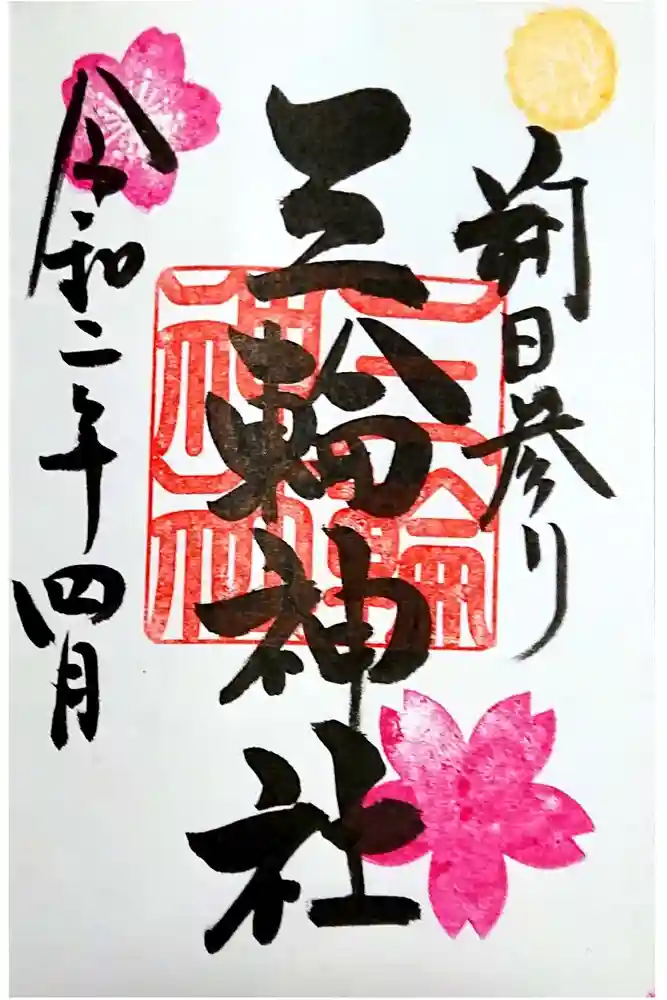 朔日参り
三輪神社
三輪
神社
令和二年四月